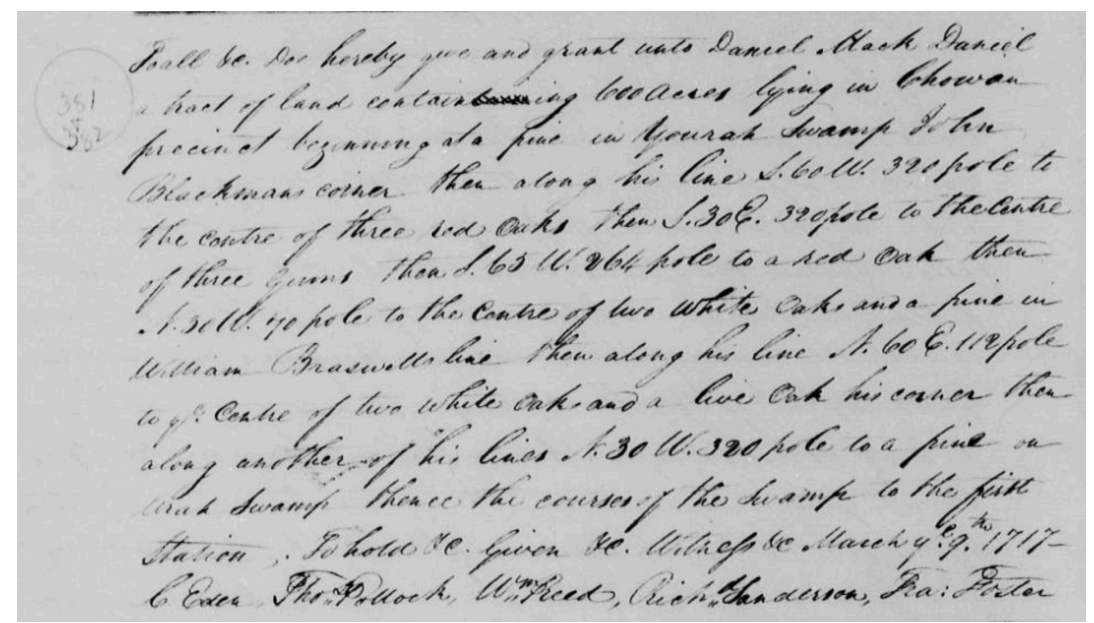 To all &c. Doe hereby give and grant unto Daniel Mack Daniel
a tract of land containing 600 acres lying in Chowan
precinct beginning at a pine in Yourah Swamp John
Blackmans corner then along his line S. 60 W. 320 pole to
the centre of three red Oaks then S. 30 E. 320 pole to the Centre
of three Gums then S. 63 W. 264 pole to a red Oak then
N. 30 W. 70 pole to the Centre of two White Oaks and a pine in
William Braswells line then along his line N. 60 E. 112 pole
to ye. Centre of two white Oaks and a live Oak his corner then
along another of his lines N. 30 W. 320 pole to a pine on
Urah Swamp thence the courses of the Swamp to the first
Station. To hold &c. Given &c. Witness &c March ye. 9th. 1717-
C Eden, Thos. Pollock, Wm. Reed, Richd. Sanderson, Fra: Foster
381
382